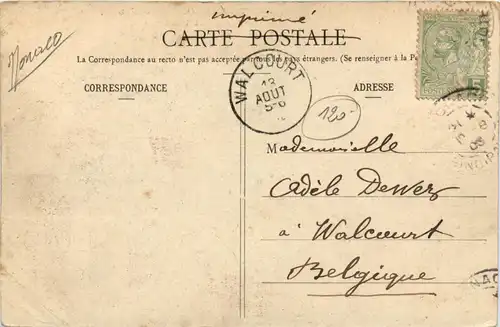 imprimé
CARTE POSTALE
Monaco
La Correspondance au recto n'est pas acceptée par tous les pays étrangers. (Se renseigner à la
CORRESPONDANCE
ADRESSE
WALCOURT
13
AOUT
5-6
120
Mademoiselle
Adèle Dewez
à Walcourt
Belgique